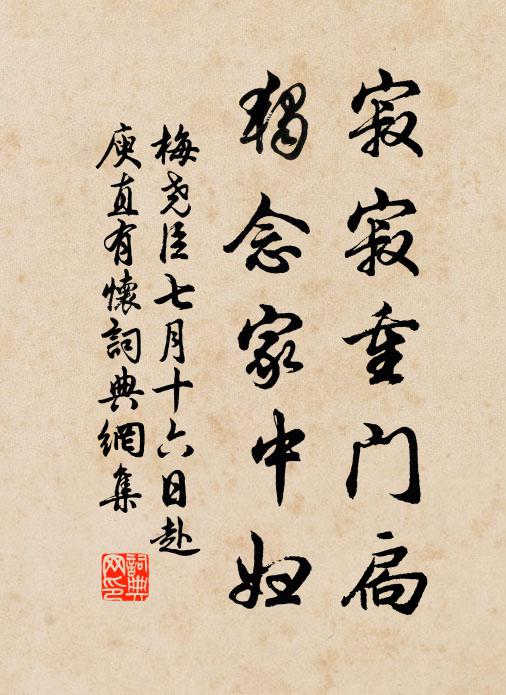 寂寂重门扃
独念家中妇
梅尧臣七月十六日赴
庾直有懷詞典網集
詞典
网印